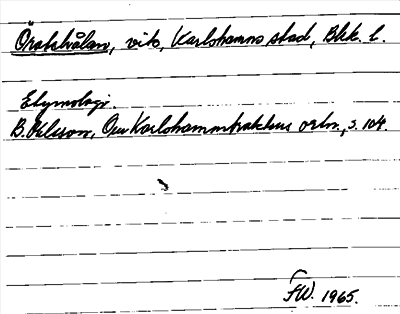 Örakvålan, vik, Karlshamns stad, Blek. l.
Etymologi.
B. Olsson, Om Karlshamnstraktens ortn., s. 104.
FW. 1965.